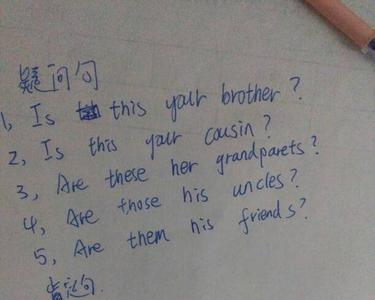 疑问句
1, Is this your brother?
2, Is this your cousin?
3, Are these her grandparets?
4, Are those his uncles?
5, Are them his friends?
肯定句.